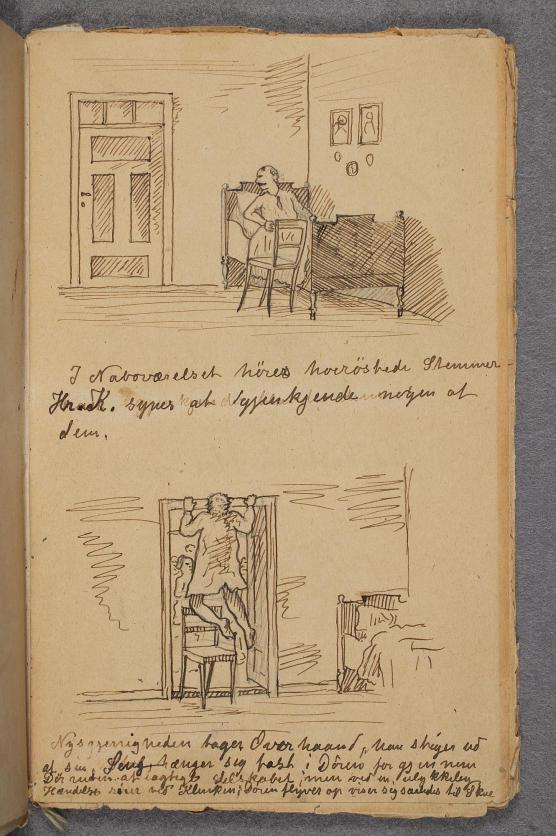 I Naboværelset höres höiröstede Stemmer -
Hr. K. synes at gjenkjende nogen af
dem.
Nysgjerrigheden tager Overhaand, han stiger ud
af sin Seng, hænger sig fast i Dören for gj
Dör selskabet, men ved en ulykkelig
Hændelse rörer ved Klinken; Dören flyver op viser sig saaledes til Skue